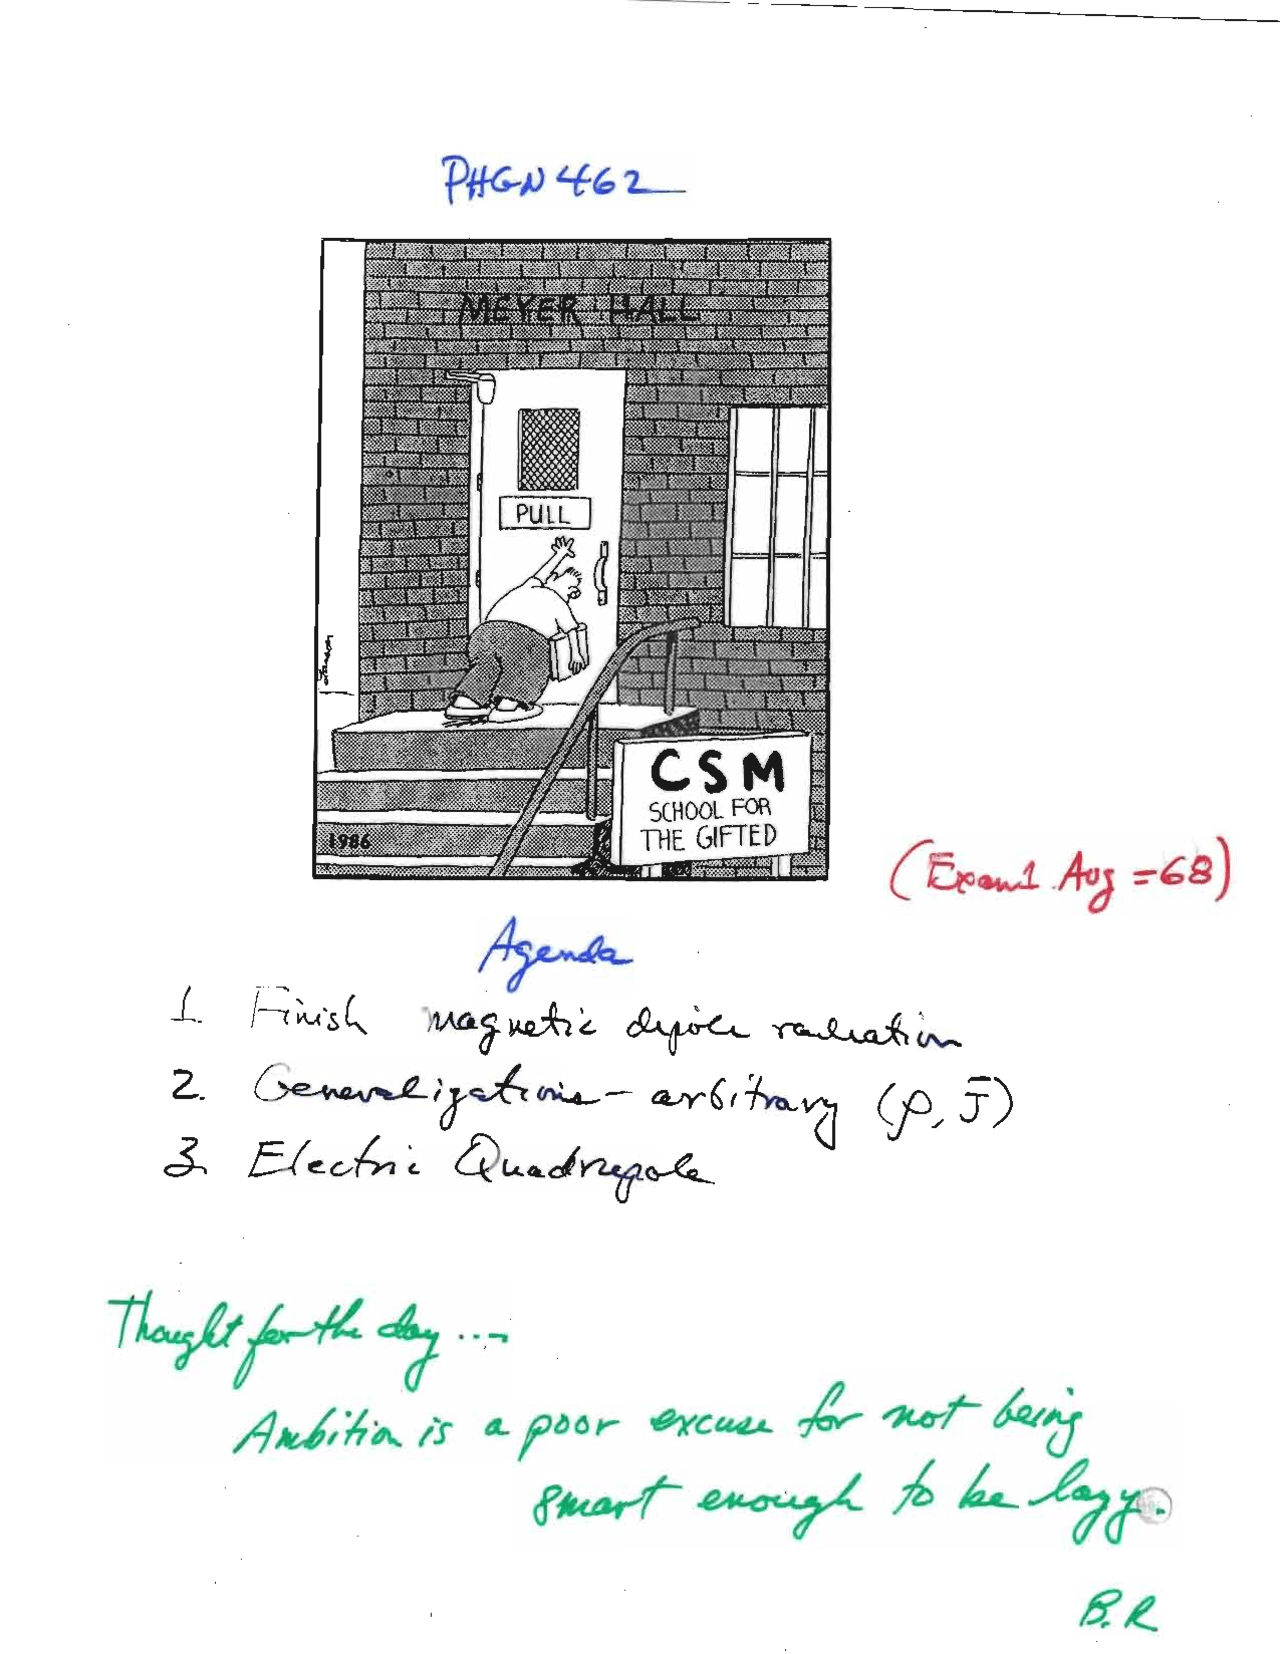 PHGN 462
MEYER HALL
PULL
Larson
CSM
SCHOOL FOR
THE GIFTED
1986
(Exam 1 Avg = 68)
Agenda
1. Finish magnetic dipole radiation
2. Generalizations - arbitrary (ρ, J̄)
3. Electric Quadrupole
Thought for the day ....
Ambition is a poor excuse for not being
smart enough to be lazy.
B.R